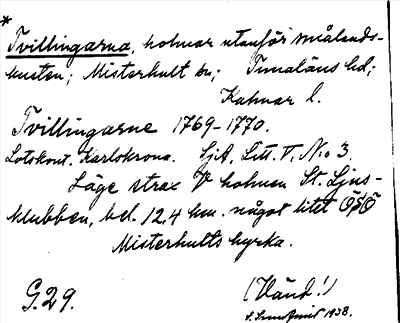 *
Tvillingarna, holmar utanför smålands-
kusten; Misterhult sn; Tunaläns hd;
Kalmar l.
Tvillingarne 1769-1770.
Lotskont. Karlskrona. Sjk, Litt. V, No 3.
Läge strax V holmen St. Ljus-
klubben, bel. 12,4 km. något litet OSO
Misterhults kyrka.
G.29.
(Vänd!)
1938.